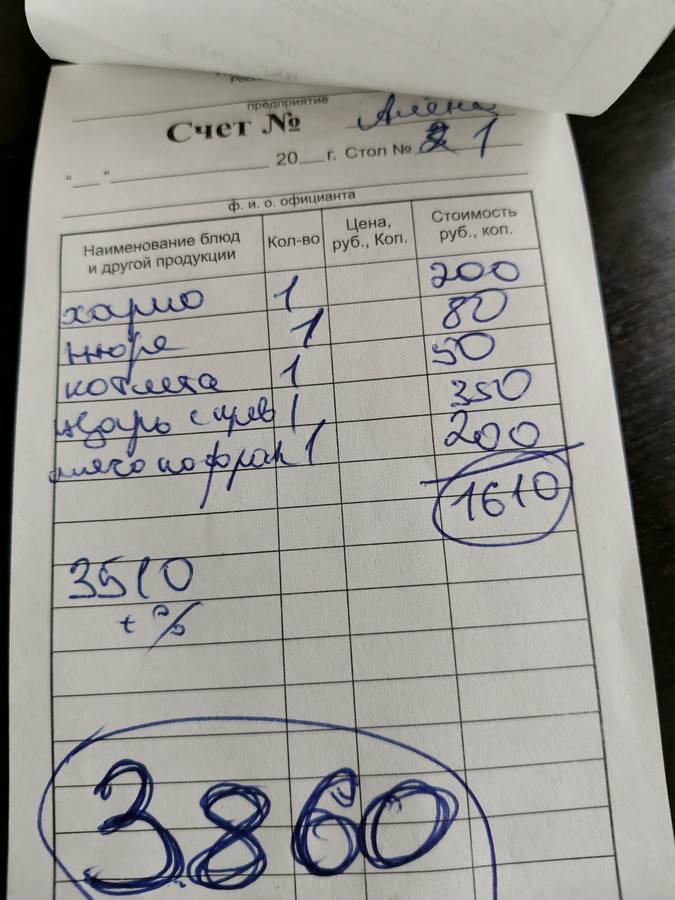 предприятие
Алёна
Счет №
"__" ________ 20__ г. Стол № 1
ф. и. о. официанта
Наименование блюд и другой продукции Кол-во Цена, руб., Коп. Стоимость руб., коп.
харчо 1 200
пюре 1 80
котлета 1 50
цезарь с крев 1 350
мясо по фран 1 200
1610
3510
+ %
3860